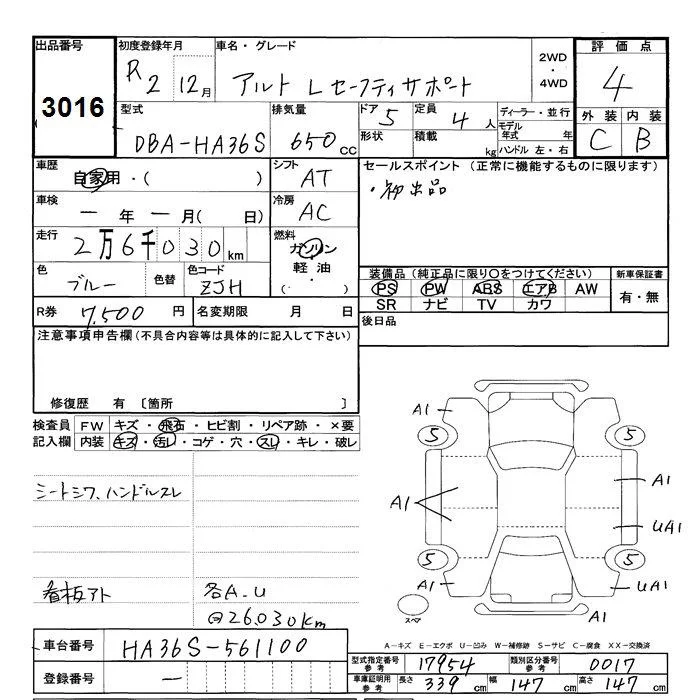 出品番号
3016
初度登録年月
R 2 12月
車名・グレード
アルト L セーフティサポート
2WD
・
4WD
評価点
4
外装 内装
C B
型式
DBA-HA36S
排気量
650 cc
ドア 5
形状
定員 4 人
積載 kg
ディーラー・並行
モデル年式 年
ハンドル 左・右
車歴
自家用・( )
シフト
AT
セールスポイント (正常に機能するものに限ります)
・初出品
車検
— 年 — 月( 日)
冷房
AC
走行
2万6千030km
燃料
ガソリン
軽油
(・ )
色
ブルー
色替
色コード
ZJH
装備品(純正品に限り○をつけてください)
PS PW ABS エアB AW
SR ナビ TV カワ
新車保証書
有・無
R券 7,500 円
名変期限 月 日
後日品
注意事項申告欄(不具合内容等は具体的に記入して下さい)
修復歴 有 〔箇所 〕
検査員記入欄
FW キズ・飛石・ヒビ割・リペア跡・×要
内装 キズ・汚レ・コゲ・穴・スレ・キレ・破レ
シートシワ、ハンドルスレ
看板アト
各A.U
@26.030km
A1
5 5
A1 A1
UA1
5 5
A1 UA1
スペア
A1
A-キズ E-エクボ U-凹み W-補修跡 S-サビ C-腐食 XX-交換済
車台番号 HA36S-561100
登録番号 —
型式指定番号 参考 17954
類別区分番号 参考 0017
車庫証明用 参考 長さ 339 cm 幅 147 cm 高さ 147 cm